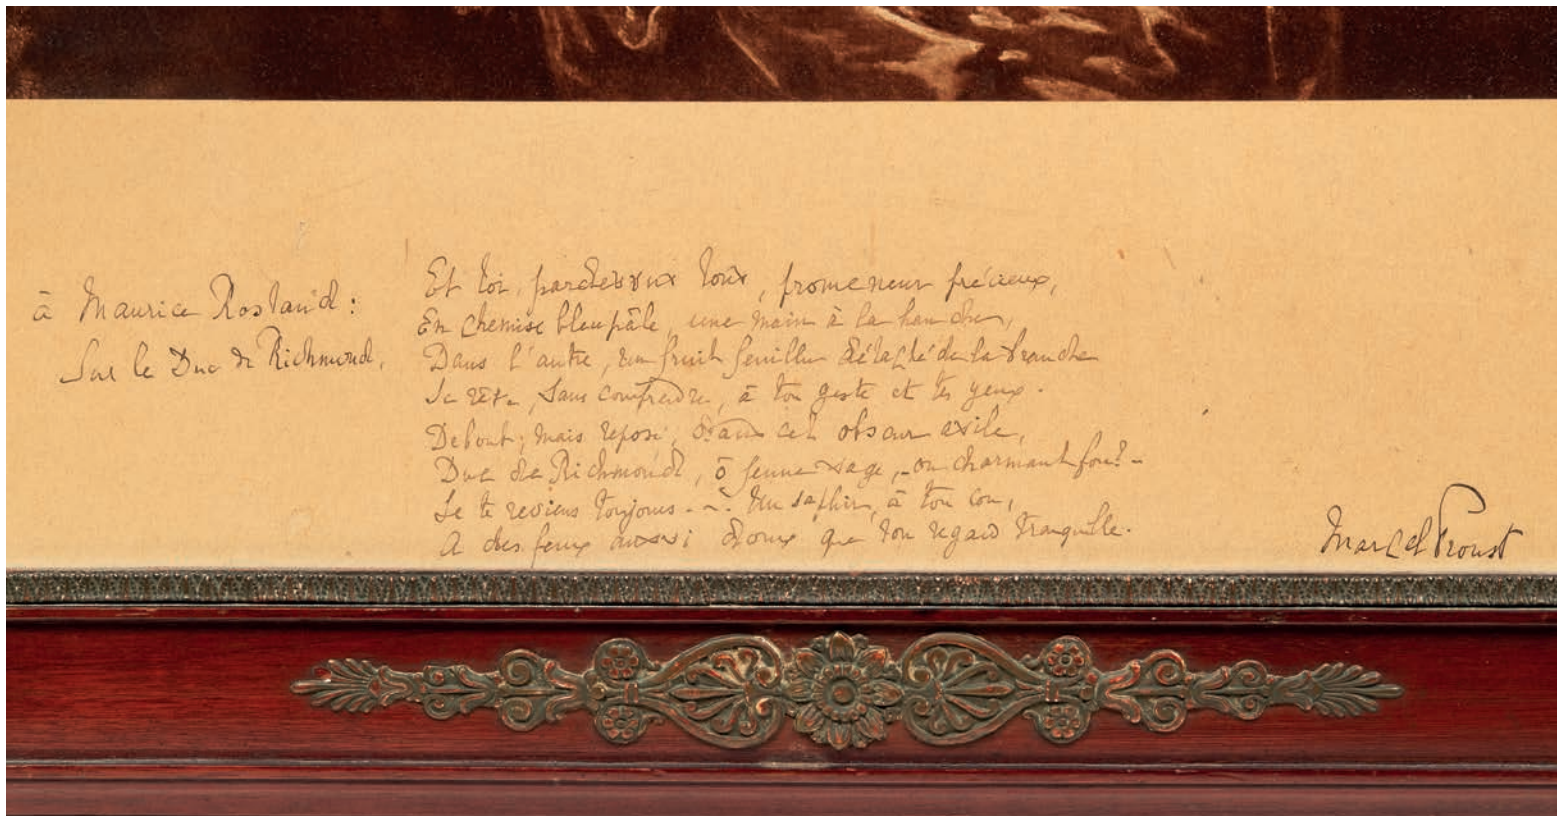 à Maurice Rostand :
Sur le Duc de Richmond.
Et toi, pardessus tous, promeneur précieux,
En chemise bleu pâle, une main à la hanche,
Dans l'autre, un fruit feuillu détaché de la branche
Je rêve, sans comprendre, à ton geste et tes yeux.
Debout, mais reposé, dans cet obscur asile,
Duc de Richmond, ô jeune sage, - ou charmant fou? -
Je te reviens toujours - . - Un saphir, à ton cou,
A des feux aussi doux que ton regard tranquille.
Marcel Proust